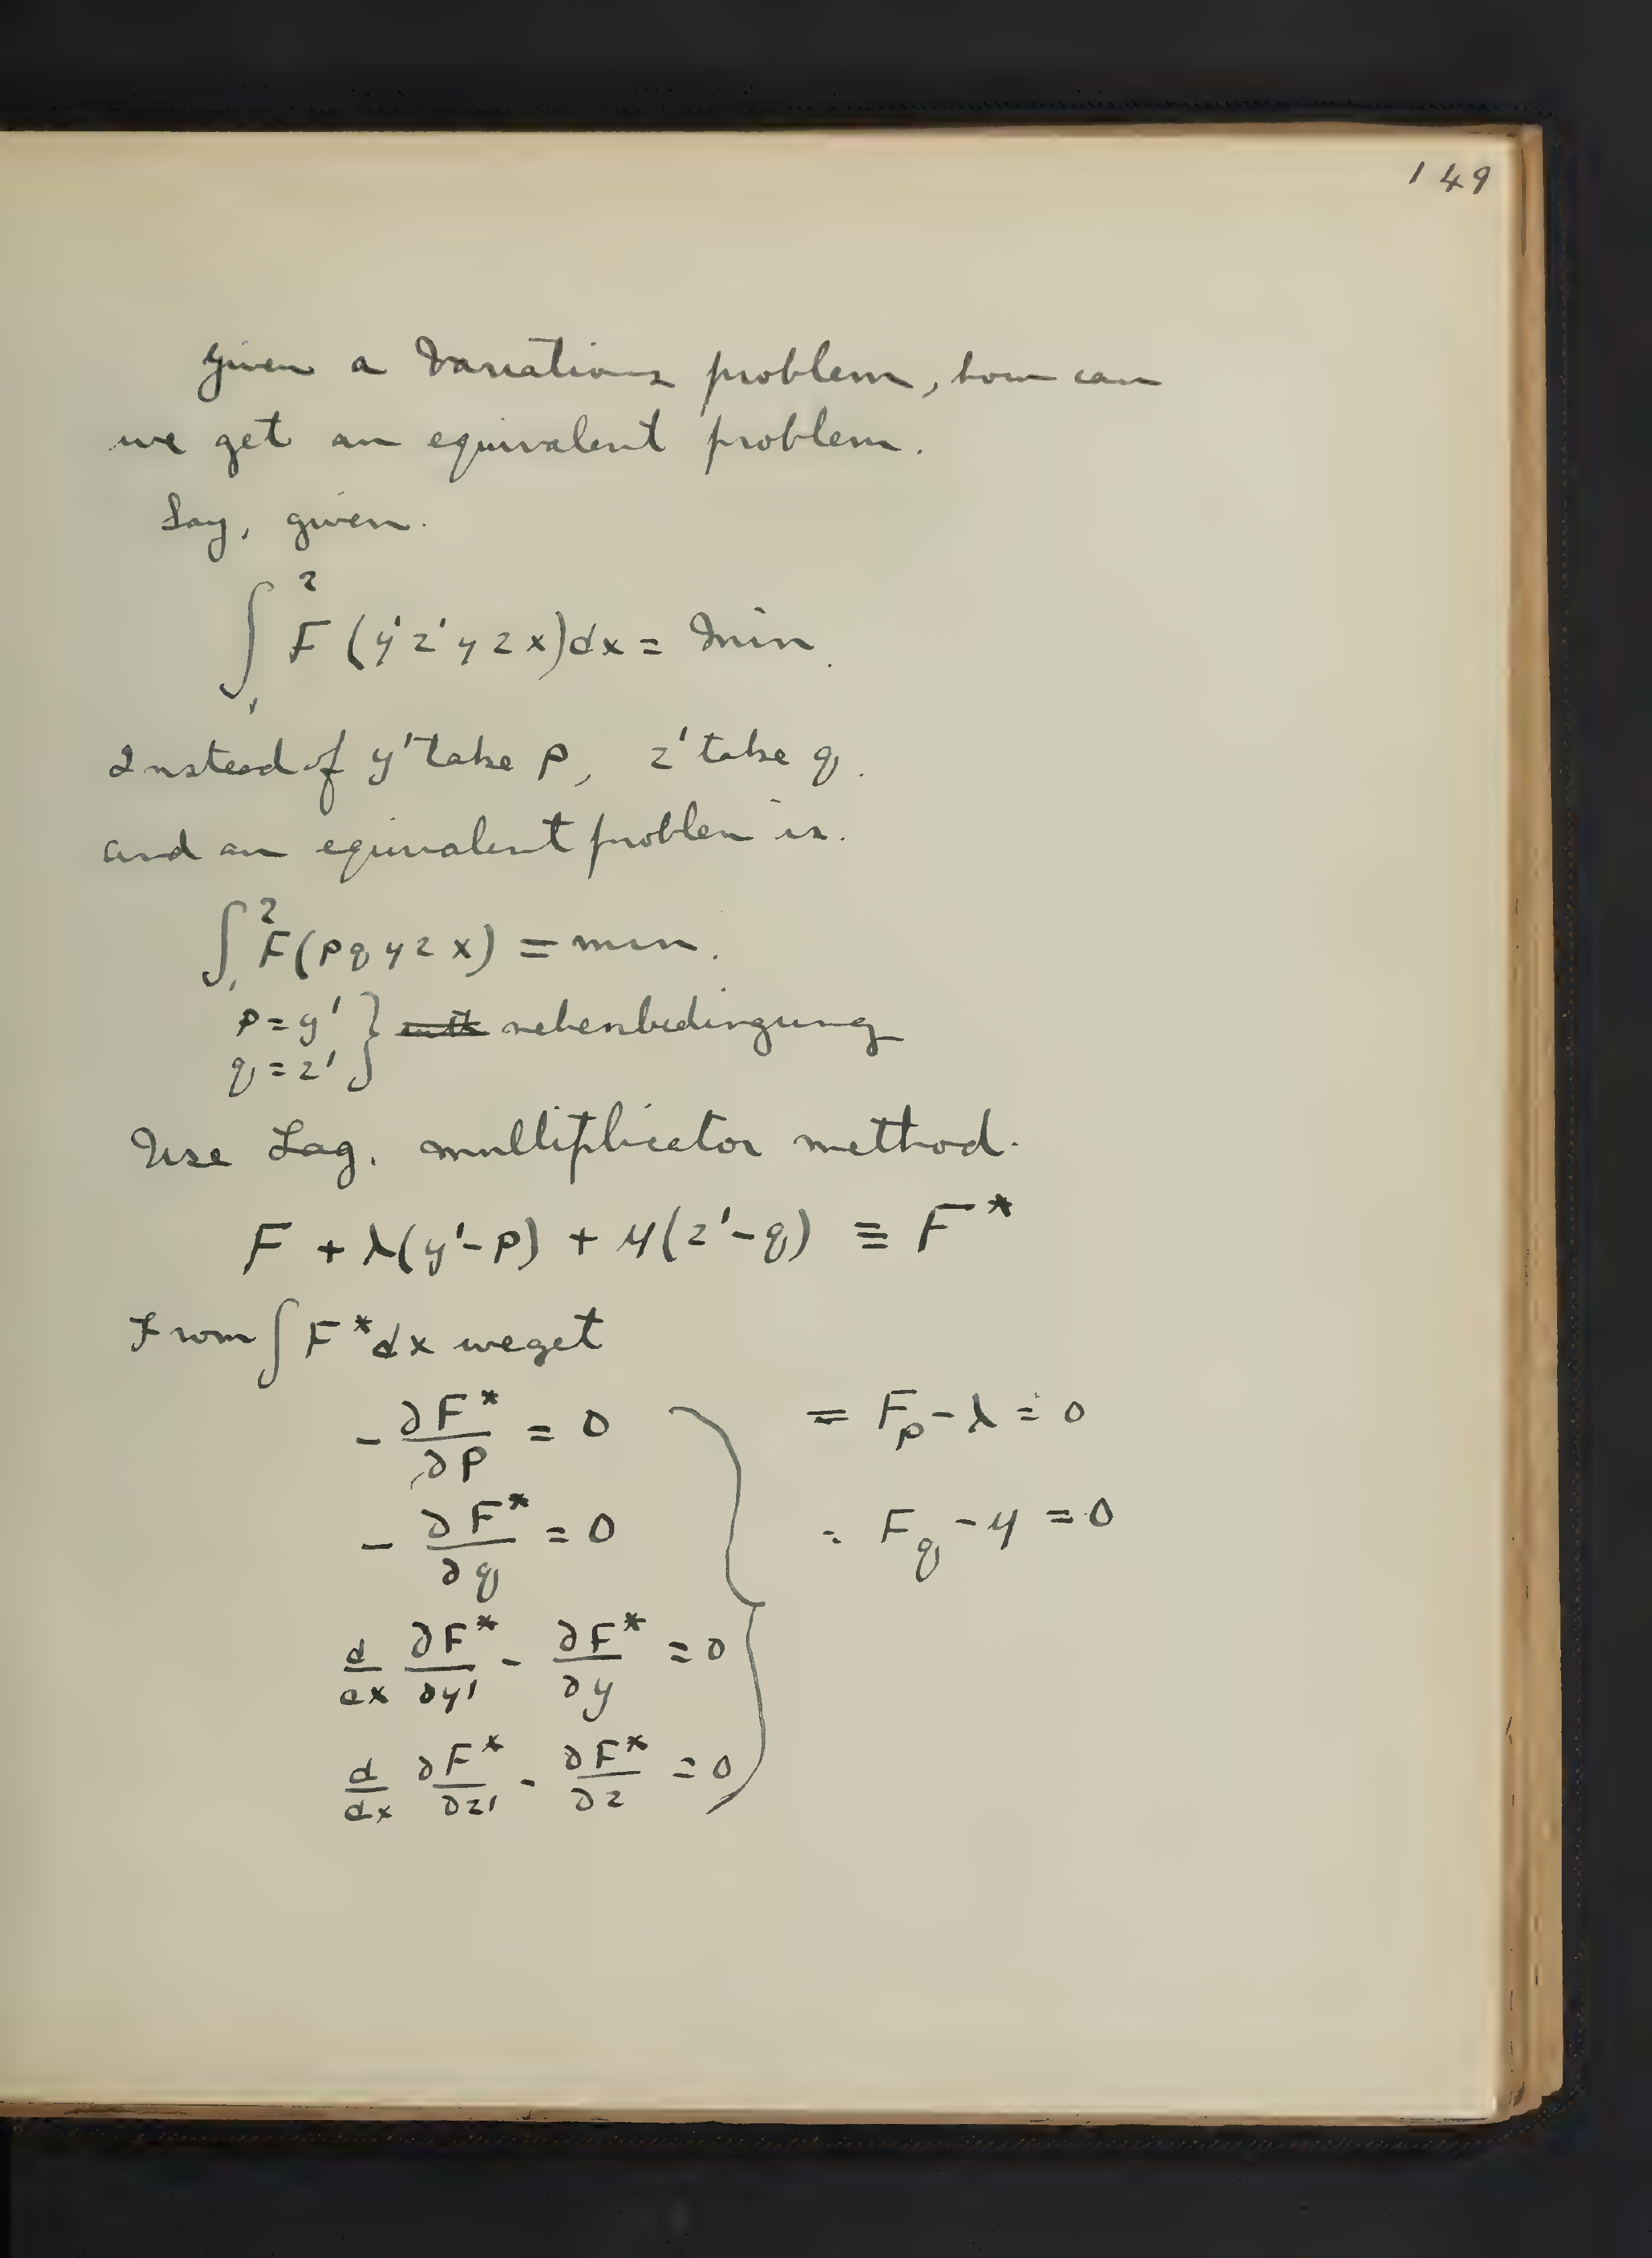 149
Given a Variations problem, how can
we get an equivalent problem.
Say, given.
∫₁² F (y' z' y z x)dx = Min.
Instead of y' take p, z' take q.
and an equivalent problem is.
∫₁² F(p q y z x) = min.
p = y' } nebenbedingung
q = z'
Use Lag. multiplicator method.
F + λ(y'-p) + μ(z'-q) ≡ F*
From ∫ F* dx we get
- ∂F*/∂p = 0 = F_p - λ = 0
- ∂F*/∂q = 0 = F_q - μ = 0
d/dx ∂F*/∂y' - ∂F*/∂y = 0
d/dx ∂F*/∂z' - ∂F*/∂z = 0